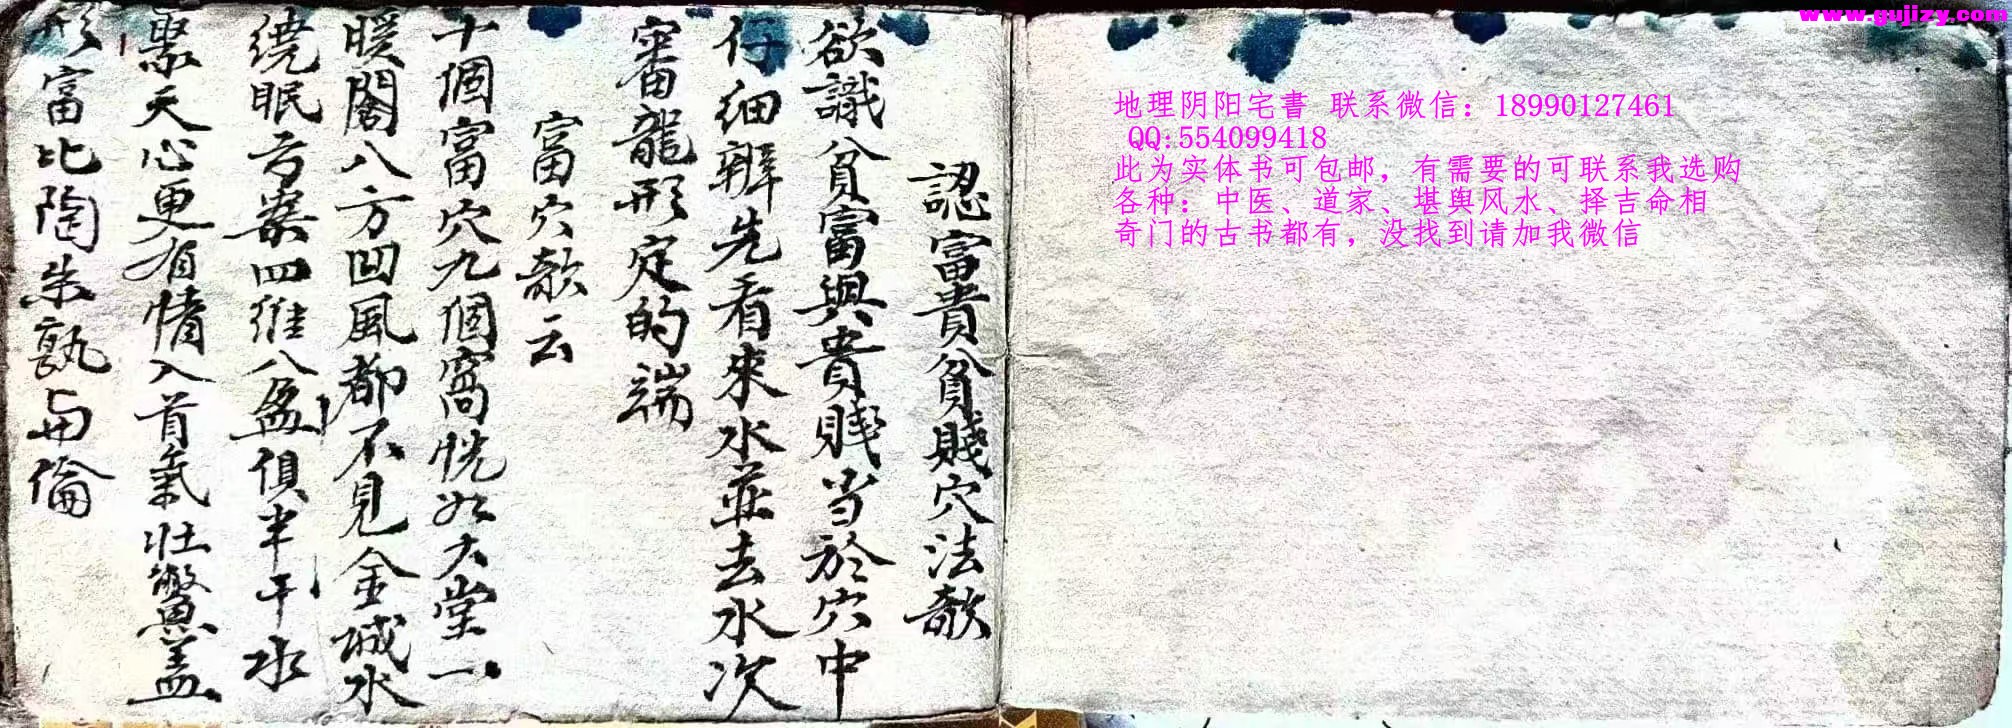 www.gujizy.com
地理阴阳宅書 联系微信：18990127461
QQ:554099418
此为实体书可包邮，有需要的可联系我选购
各种：中医、道家、堪舆风水、择吉命相
奇门的古书都有，没找到请加我微信
認富貴貧賤穴法歌
欲識貧富與貴賤当於穴中
仔細辨先看來水並去水次
審龍形定的端
富穴歌云
十個富穴九個窩恍如大堂一
暖閣八方凹風都不見金城水
繞眠弓案四維八 俱半干水
聚天心更有情入首氣壯鱉蓋
形富比陶朱孰与倫